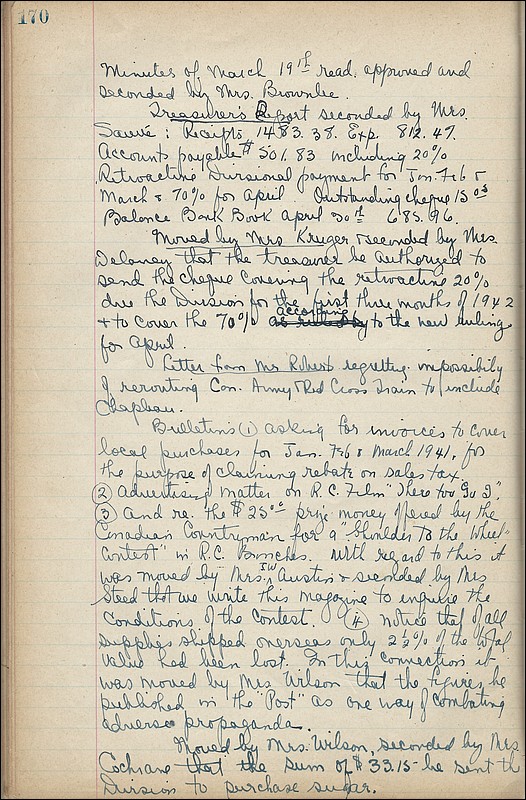 170
Minutes of March 19th read, approved and
seconded by Mrs. Brownlee.
Treasurer's Report seconded by Mrs.
Sauvé: Receipts 1483.38. Exp. 812.47.
Accounts payable $501.83 including 20%
Retroactive Divisional payment for Jan. Feb &
March & 70% for April. Outstanding cheque 15.00
Balance Bank Book April 30th 685.96.
Moved by Mrs Kruger & seconded by Mrs.
Delaney that the treasurer be authorized to
send the cheque covering the retroactive 20%
due the Division for the first three months of 1942
& to cover the 70% according to the new ruling
for April.
Letter from Mr Roberts regretting impossibility
of rerouting Can. Army & Red Cross Train to include
Chapleau.
Bulletins (1) asking for invoices to cover
local purchases for Jan. Feb & March 1941, for
the purpose of claiming rebate on sales tax.
(2) Advertising matter on R.C. Film "There too Go I".
(3) And re. the $25.00 prize money offered by the
Canadian Countryman for a "Shoulder to the Wheel"
Contest" in R.C. Branches. With regard to this it
was moved by Mrs. Austin & seconded by Mrs
Steed that we write this magazine to enquire the
conditions of the contest. (4) Notice that of all
supplies shipped overseas only 2½% of the total
value had been lost. In this connection it
was moved by Mrs Wilson that the figures be
published in the "Post" as one way of combating
adverse propaganda.
Moved by Mrs. Wilson, seconded by Mrs
Cochrane that the sum of $33.15 be sent the
Division to purchase sugar.